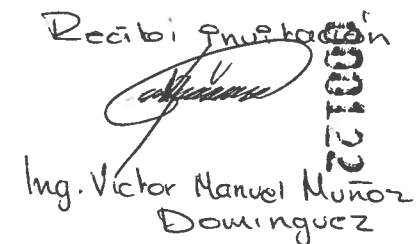 Recibi invitación
000122
Ing. Victor Manuel Muñoz
Dominguez